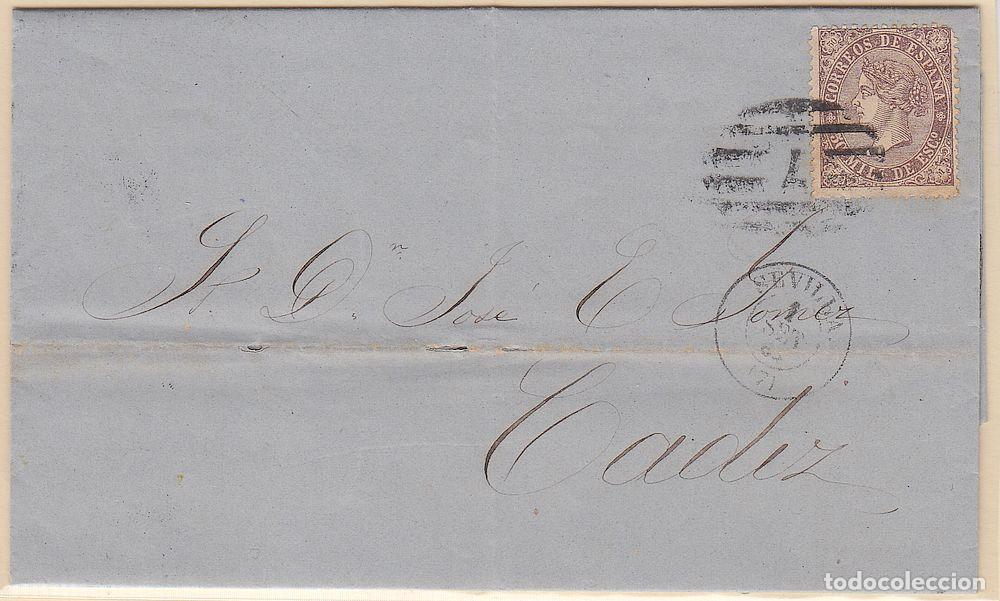 CORREOS DE ESPAÑA
50 MILS DE ESCO
4
Sr. Dn José E Gomez
SEVILLA
(7)
Cadiz
todocoleccion